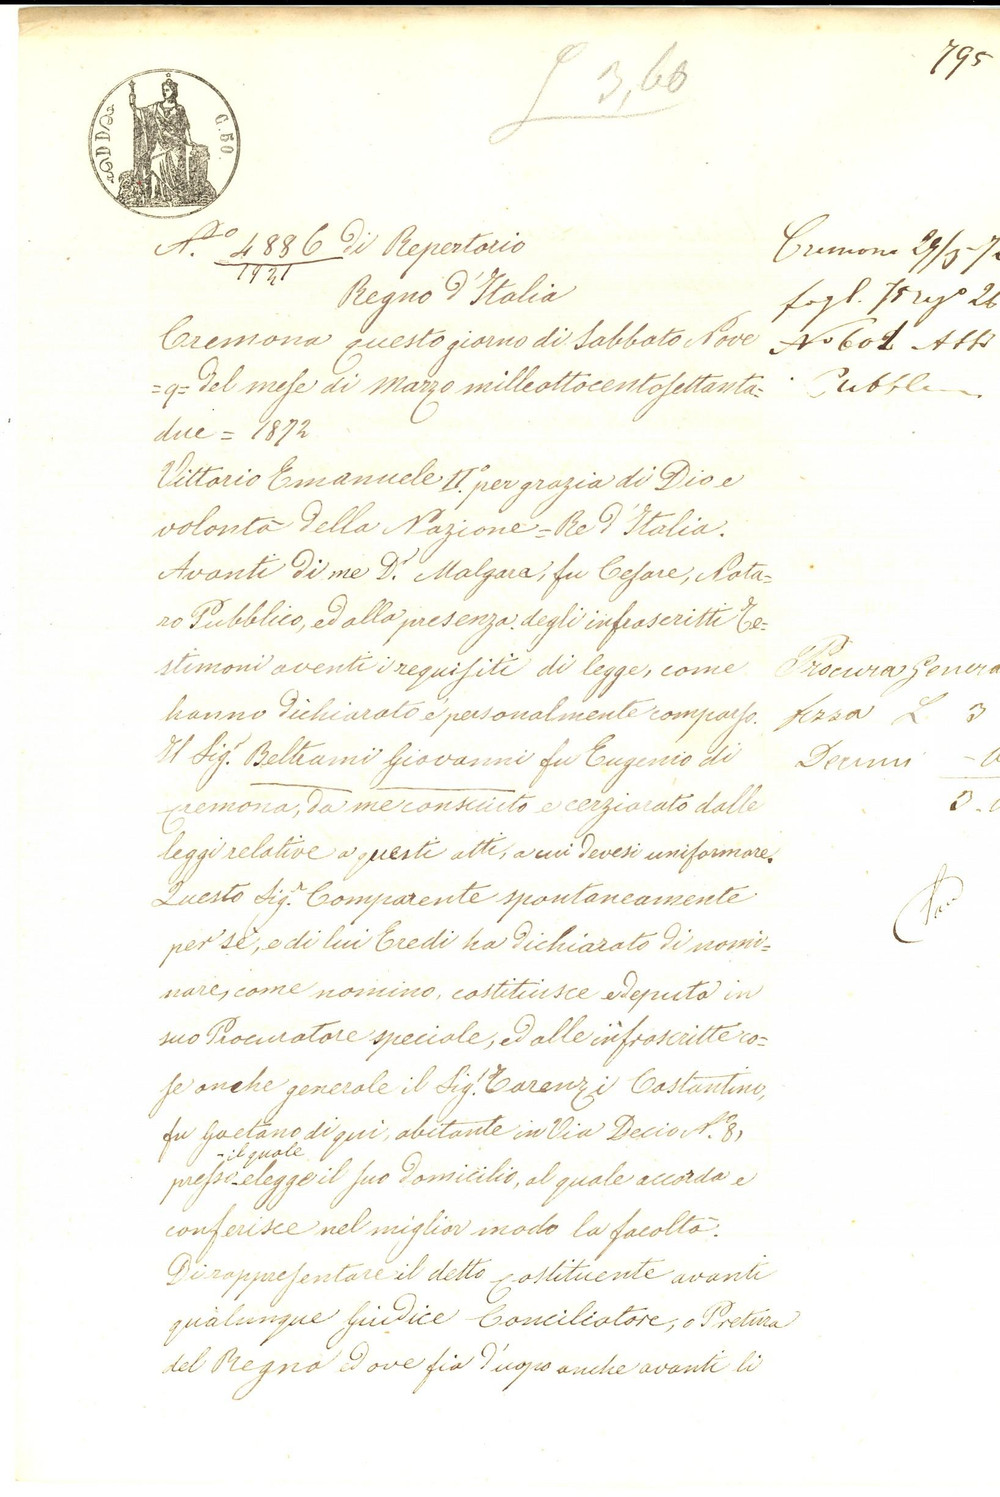 795
L 3,60
C. 50.
N.ro 4886 di Repertorio
1921
Regno d'Italia
Cremona questo giorno di Sabbato Nove
=9= del mese di Marzo milleottocentosettanta=
due = 1872
Vittorio Emanuele II.° per grazia di Dio e
volontà della Nazione = Re d'Italia.
Avanti di me D.r Malgara, fu Cesare, Nota=
ro Pubblico, ed alla presenza degli infrascritti Te=
stimoni aventi i requisiti di legge, come
hanno dichiarato è personalmente comparso.
Il Sig.r Beltrami Giovanni fu Eugenio di
Cremona, da me consciuto e cerziorato dalle
leggi relative a questi atti, a cui devesi uniformare.
Questo Sig.r Comparente spontaneamente
per sé, e di lui Eredi ha dichiarato di nomi=
nare, come nomino, costituisce e deputa in
suo Procuratore speciale, ed alle infrascritte co=
se anche generale il Sig.r Tarenzi Costantino,
fu Gaetano di qui, abitante in Via Decio N.° 8,
- il quale
presso elegge il suo domicilio, al quale accorda e
conferisce nel miglior modo la facoltà.
Di rappresentare il detto Costituente avanti
qualunque Giudice Conciliatore, o Pretura
del Regno e dove fia d'uopo anche avanti li
Cremona 29/3-72
fogl. 75 reg° 26
N° 601 Atti
Pubbl
Procura Genera
fissa L 3
Decimi
3